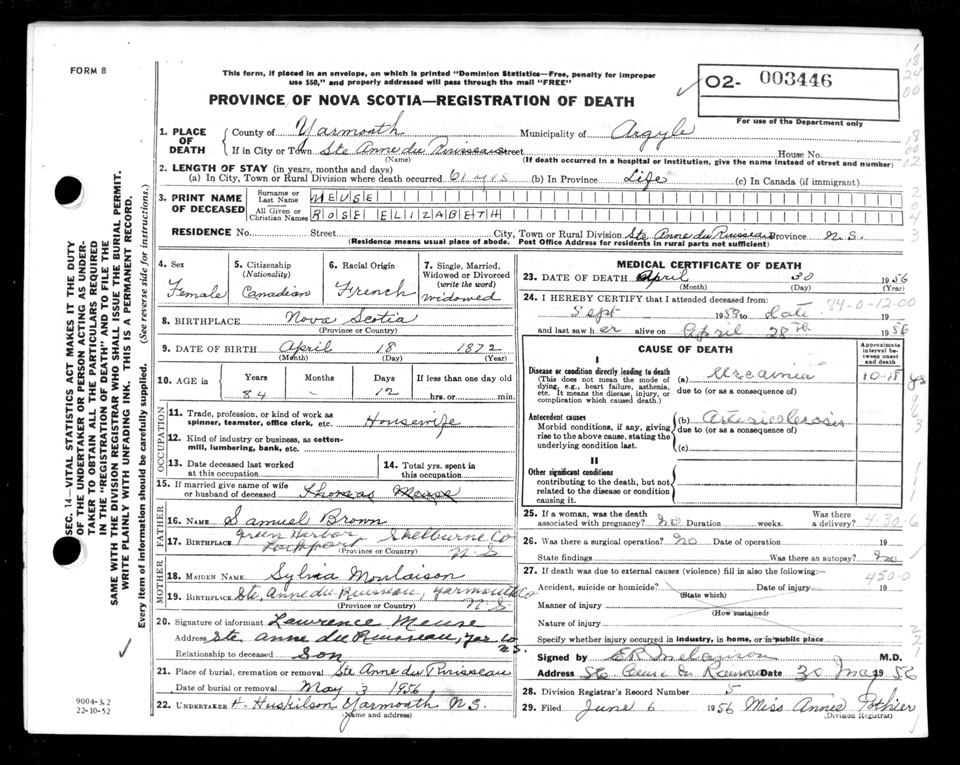 FORM 8
This form, if placed in an envelope, on which is printed "Dominion Statistics—Free, penalty for improper
use $50," and properly addressed will pass through the mail "FREE"
O2- 003446
For use of the Department only
PROVINCE OF NOVA SCOTIA—REGISTRATION OF DEATH
1. PLACE OF DEATH
County of Yarmouth Municipality of Argyle
If in City or Town Ste Anne du Ruisseau Street House No.
(Name) (If death occurred in a hospital or institution, give the name instead of street and number)
2. LENGTH OF STAY (in years, months and days)
(a) In City, Town or Rural Division where death occurred 61 yrs (b) In Province Life (c) In Canada (if immigrant)
3. PRINT NAME OF DECEASED
Surname or Last Name MEUSE
All Given or Christian Names ROSE ELIZABETH
RESIDENCE No. Street City, Town or Rural Division Ste. Anne du Ruisseau Province N S.
(Residence means usual place of abode. Post Office Address for residents in rural parts not sufficient)
4. Sex Female
5. Citizenship (Nationality) Canadian
6. Racial Origin French
7. Single, Married, Widowed or Divorced (write the word) widowed
8. BIRTHPLACE Nova Scotia
(Province or Country)
9. DATE OF BIRTH April 18 1872
(Month) (Day) (Year)
10. AGE in Years Months Days If less than one day old
84 - 12 hrs. or min.
OCCUPATION
11. Trade, profession, or kind of work as
spinner, teamster, office clerk, etc. Housewife
12. Kind of industry or business, as cotton-
mill, lumbering, bank, etc.
13. Date deceased last worked
at this occupation
14. Total yrs. spent in
this occupation
15. If married give name of wife
or husband of deceased Thomas Meuse
FATHER
16. NAME Samuel Brown
17. BIRTHPLACE Green Harbor Shelburne Co
Lockport N S
(Province or Country)
MOTHER
18. MAIDEN NAME Sylvia Moulaison
19. BIRTHPLACE Ste. Anne du Ruisseau, Yarmouth Co
N.S
(Province or Country)
20. Signature of informant Lawrence Meuse
Address Ste. Anne du Ruisseau, Yar. Co
N.S.
Relationship to deceased Son
21. Place of burial, cremation or removal Ste Anne du Ruisseau
Date of burial or removal May 3 1956
22. UNDERTAKER H. Huskilson Yarmouth N S.
(Name and address)
MEDICAL CERTIFICATE OF DEATH
23. DATE OF DEATH April 30 1956
(Month) (Day) (Year)
24. I HEREBY CERTIFY that I attended deceased from:
84-0-12.00
Sept to date 19
and last saw her alive on April 28th 1956
CAUSE OF DEATH
Approximate interval between onset and death
I
Disease or condition directly leading to death
(This does not mean the mode of
dying, e.g., heart failure, asthenia,
etc. It means the disease, injury, or
complication which caused death.)
(a) Uraemia
due to (or as a consequence of)
Antecedent causes
Morbid conditions, if any, giving
rise to the above cause, stating the
underlying condition last.
(b) Arteriosclerosis
due to (or as a consequence of)
(c)
II
Other significant conditions
contributing to the death, but not
related to the disease or condition
causing it.
25. If a woman, was the death
associated with pregnancy? No Duration weeks. Was there
a delivery?
4-30-6
26. Was there a surgical operation? No Date of operation 19
State findings Was there an autopsy? No
27. If death was due to external causes (violence) fill in also the following:—
450.0
Accident, suicide or homicide? Date of injury 19
(State which)
Manner of injury
(How sustained)
Nature of injury
Specify whether injury occurred in industry, in home, or in public place
Signed by E R Melanson M.D.
Address Ste Anne du Ruisseau Date 30 1956
28. Division Registrar's Record Number 5
29. Filed June 6 1956 Miss Annie Pothier
(Division Registrar)
SEC. 14—VITAL STATISTICS ACT MAKES IT THE DUTY
OF THE UNDERTAKER OR PERSON ACTING AS UNDER-
TAKER TO OBTAIN ALL THE PARTICULARS REQUIRED
IN THE "REGISTRATION OF DEATH" AND TO FILE THE
SAME WITH THE DIVISION REGISTRAR WHO SHALL ISSUE THE BURIAL PERMIT.
WRITE PLAINLY WITH UNFADING INK. THIS IS A PERMANENT RECORD.
Every item of information should be carefully supplied. (See reverse side for instructions.)
22-10-52